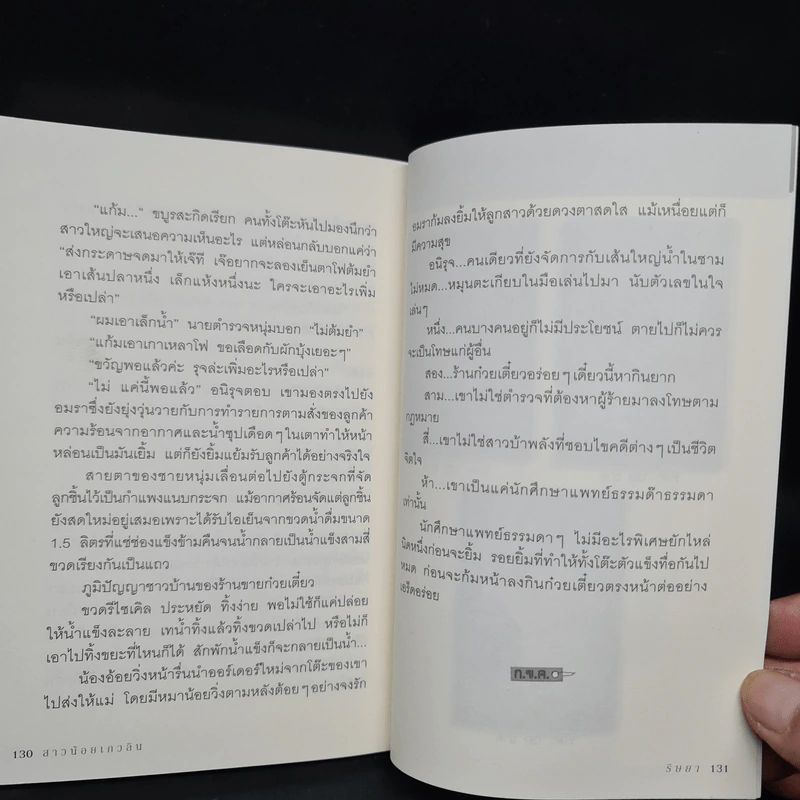 "แก้ม..." ขบูรสะกิดเรียก คนทั้งโต๊ะหันไปมองนึกว่า
สาวใหญ่จะเสนอความเห็นอะไร แต่หล่อนกลับบอกแค่ว่า
"ส่งกระดาษจดมาให้เจ๊ที เจ๊อยากจะลองเย็นตาโฟต้มยำ
เอาเส้นปลาหนึ่ง เล็กแห้งหนึ่งนะ ใครจะเอาอะไรเพิ่ม
หรือเปล่า"
"ผมเอาเล็กน้ำ" นายตำรวจหนุ่มบอก "ไม่ต้มยำ"
"แก้มเอาเกาเหลาโฟ ขอเลือดกับผักบุ้งเยอะๆ"
"ขวัญพอแล้วค่ะ รุจล่ะเพิ่มอะไรหรือเปล่า"
"ไม่ แค่นี้พอแล้ว" อนิรุจตอบ เขามองตรงไปยัง
อมราซึ่งยังยุ่งวุ่นวายกับการทำรายการตามสั่งของลูกค้า
ความร้อนจากอากาศและน้ำซุปเดือดๆ ในเตาทำให้หน้า
หล่อนเป็นมันเยิ้ม แต่ก็ยังยิ้มแย้มรับลูกค้าได้อย่างจริงใจ
สายตาของชายหนุ่มเลื่อนต่อไปยังตู้กระจกที่จัด
ลูกชิ้นไว้เป็นกำแพงแนบกระจก แม้อากาศร้อนจัดแต่ลูกชิ้น
ยังสดใหม่อยู่เสมอเพราะได้รับไอเย็นจากขวดน้ำดื่มขนาด
1.5 ลิตรที่แช่ช่องแข็งข้ามคืนจนน้ำกลายเป็นน้ำแข็งสามสี่
ขวดเรียงกันเป็นแถว
ภูมิปัญญาชาวบ้านของร้านขายก๋วยเตี๋ยว
ขวดรีไซเคิล ประหยัด ทิ้งง่าย พอไม่ใช้ก็แค่ปล่อย
ให้น้ำแข็งละลาย เทน้ำทิ้งแล้วทิ้งขวดเปล่าไป หรือไม่ก็
เอาไปทิ้งขยะที่ไหนก็ได้ สักพักน้ำแข็งก็จะกลายเป็นน้ำ...
น้องอ้อยวิ่งหน้ารื่นนำออร์เดอร์ใหม่จากโต๊ะของเขา
ไปส่งให้แม่ โดยมีหมาน้อยวิ่งตามหลังต้อยๆ อย่างจงรัก
130 สาวน้อยเกวลิน
อมราก้มลงยิ้มให้ลูกสาวด้วยดวงตาสดใส แม้เหนื่อยแต่ก็
มีความสุข
อนิรุจ...คนเดียวที่ยังจัดการกับเส้นใหญ่น้ำในชาม
ไม่หมด...หมุนตะเกียบในมือเล่นไปมา นับตัวเลขในใจ
เล่นๆ
หนึ่ง...คนบางคนอยู่ก็ไม่มีประโยชน์ ตายไปก็ไม่ควร
จะเป็นโทษแก่ผู้อื่น
สอง...ร้านก๋วยเตี๋ยวอร่อยๆ เดี๋ยวนี้หากินยาก
สาม...เขาไม่ใช่ตำรวจที่ต้องหาผู้ร้ายมาลงโทษตาม
กฎหมาย
สี่...เขาไม่ใช่สาวบ้าพลังที่ชอบไขคดีต่างๆ เป็นชีวิต
จิตใจ
ห้า...เขาเป็นแค่นักศึกษาแพทย์ธรรมด๊าธรรมดา
เท่านั้น
นักศึกษาแพทย์ธรรมดาๆ ไม่มีอะไรพิเศษยักไหล่
นิดหนึ่งก่อนจะยิ้ม รอยยิ้มที่ทำให้ทั้งโต๊ะตัวแข็งทื่อกันไป
หมด ก่อนจะก้มหน้าลงกินก๋วยเตี๋ยวตรงหน้าต่ออย่าง
เอร็ดอร่อย
ก.ข.ค.
ริษยา 131